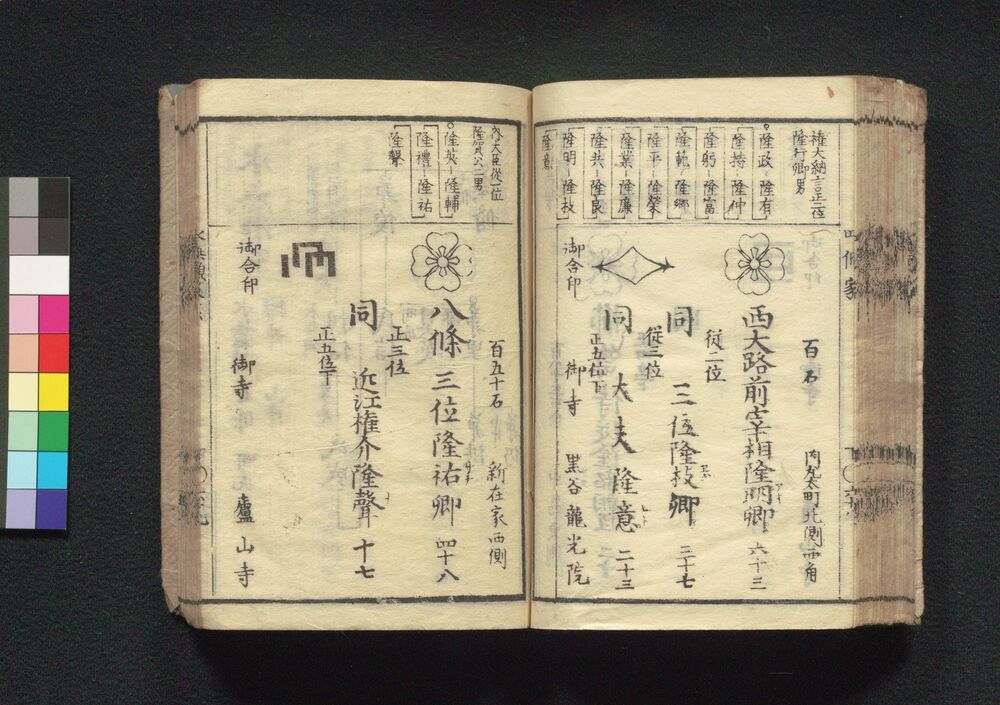 四條家
權大納言正二位
隆行卿男
隆政－隆有
隆持－隆仲
隆躬－隆富
隆範－隆郷
隆平－隆榮
隆業－隆廉
隆共－隆良
隆明－隆枝
隆意
百石
内丸太町北側西角
西大路前宰相隆明卿 六十三
從二位
同 三位隆枝卿 三十七
從三位
同 大夫隆意 二十三
正五位下
御合印
御寺 黒谷龍光院
内大臣從一位
隆賀公二男
隆英－隆輔
隆禮－隆祐
隆聲
百五十石
新在家西側
八條三位隆祐卿 四十八
正三位
同 近江權介隆聲 十七
正五位下
御合印
御寺 廬山寺